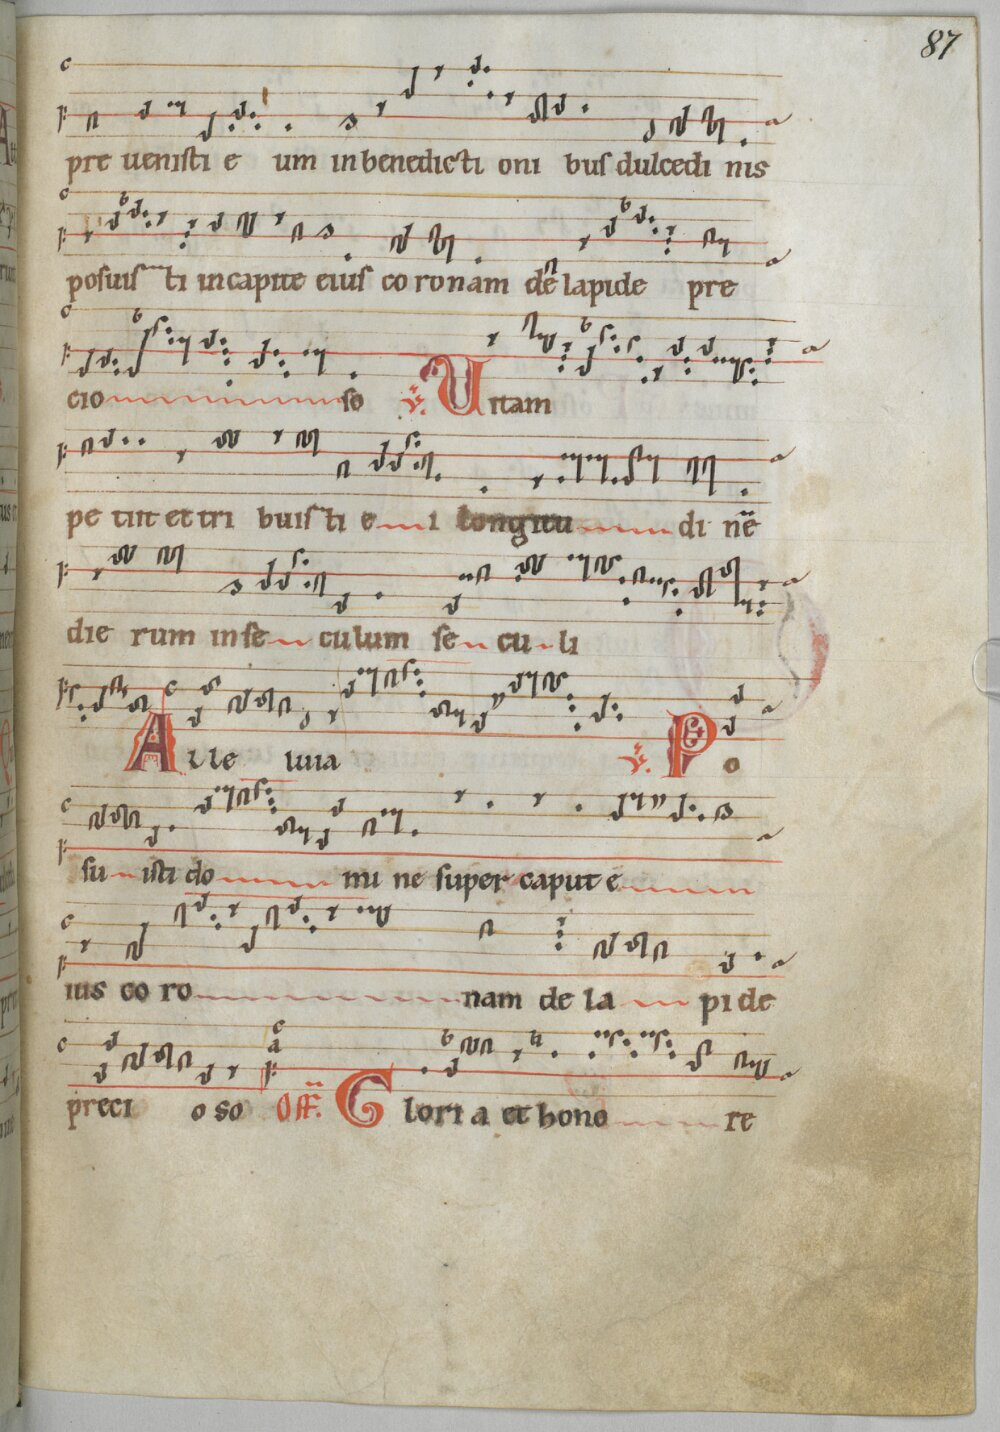 87
pre ueniſti e um inbenedicti oni buſ dulcedi nis
poſuiſ ti incapite eiuſ co ronam de lapide pre
cio so ℣. Uitam
pe tiit et tri buiſ ti e i longitu di nē
die rum inſe culum ſe cu li
A lle luia ℣. Po
ſu iſti do mi ne ſuper caput e
ius co ro nam de la pi de
preci o so Off. Glori a et hono re